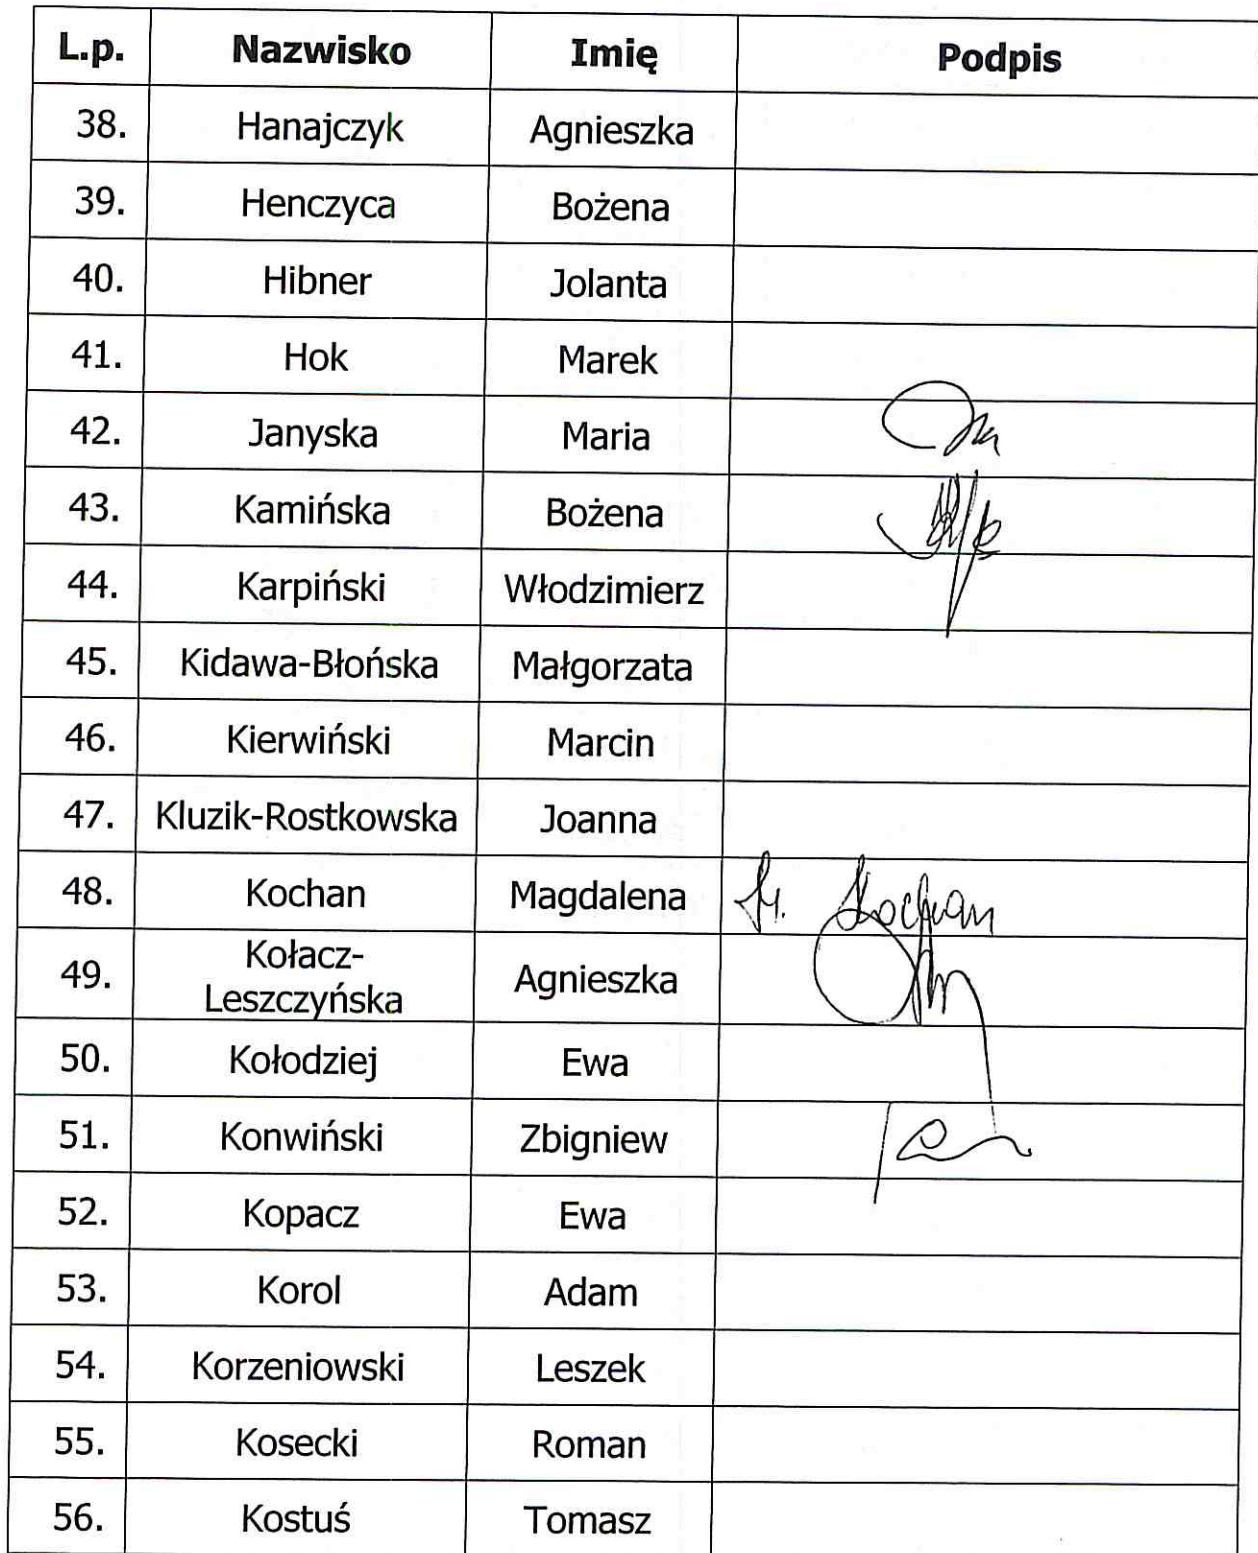 L.p. Nazwisko Imię Podpis
38. Hanajczyk Agnieszka
39. Henczyca Bożena
40. Hibner Jolanta
41. Hok Marek
42. Janyska Maria
43. Kamińska Bożena
44. Karpiński Włodzimierz
45. Kidawa-Błońska Małgorzata
46. Kierwiński Marcin
47. Kluzik-Rostkowska Joanna
48. Kochan Magdalena Kochan
49. Kołacz-
Leszczyńska Agnieszka
50. Kołodziej Ewa
51. Konwiński Zbigniew
52. Kopacz Ewa
53. Korol Adam
54. Korzeniowski Leszek
55. Kosecki Roman
56. Kostuś Tomasz